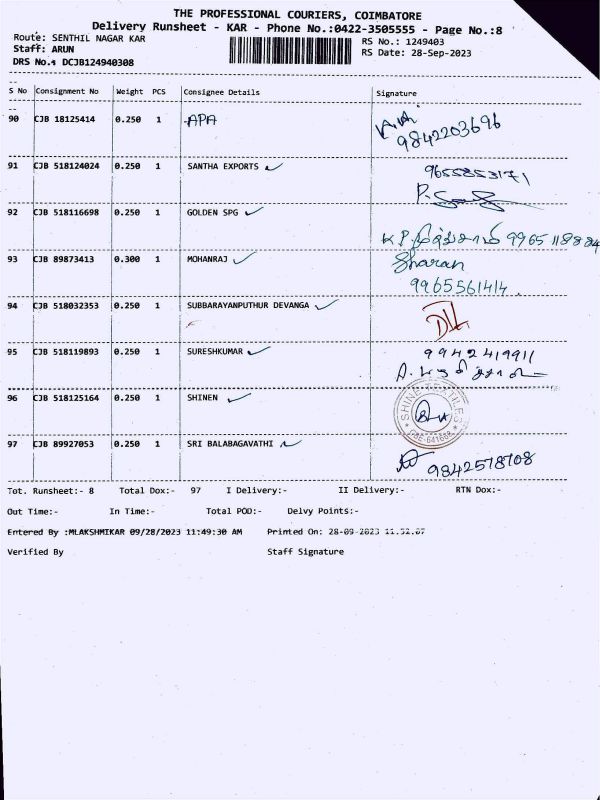 THE PROFESSIONAL COURIERS, COIMBATORE
Delivery Runsheet - KAR - Phone No.:0422-3505555 - Page No.:8
Route: SENTHIL NAGAR KAR
RS No.: 1249403
Staff: ARUN
RS Date: 28-Sep-2023
DRS No.: DCJB124940308
S No Consignment No Weight PCS Consignee Details Signature
90 CJB 18125414 0.250 1 APA
9842203696
91 CJB 518124024 0.250 1 SANTHA EXPORTS 9655853171
92 CJB 518116698 0.250 1 GOLDEN SPG
K.P. 99651188
93 CJB 89873413 0.300 1 MOHANRAJ Sharan
9965561414
94 CJB 518032353 0.250 1 SUBBARAYANPUTHUR DEVANGA
95 CJB 518119893 0.250 1 SURESHKUMAR 9942419911
96 CJB 518125164 0.250 1 SHINEN SHINE TEXTILES
97 CJB 89927053 0.250 1 SRI BALABAGAVATHI
9842578708
Tot. Runsheet:- 8 Total Dox:- 97 I Delivery:- II Delivery:- RTN Dox:-
Out Time:- In Time:- Total POD:- Delvy Points:-
Entered By :MLAKSHMIKAR 09/28/2023 11:49:30 AM Printed On: 28-09-2023
Verified By Staff Signature